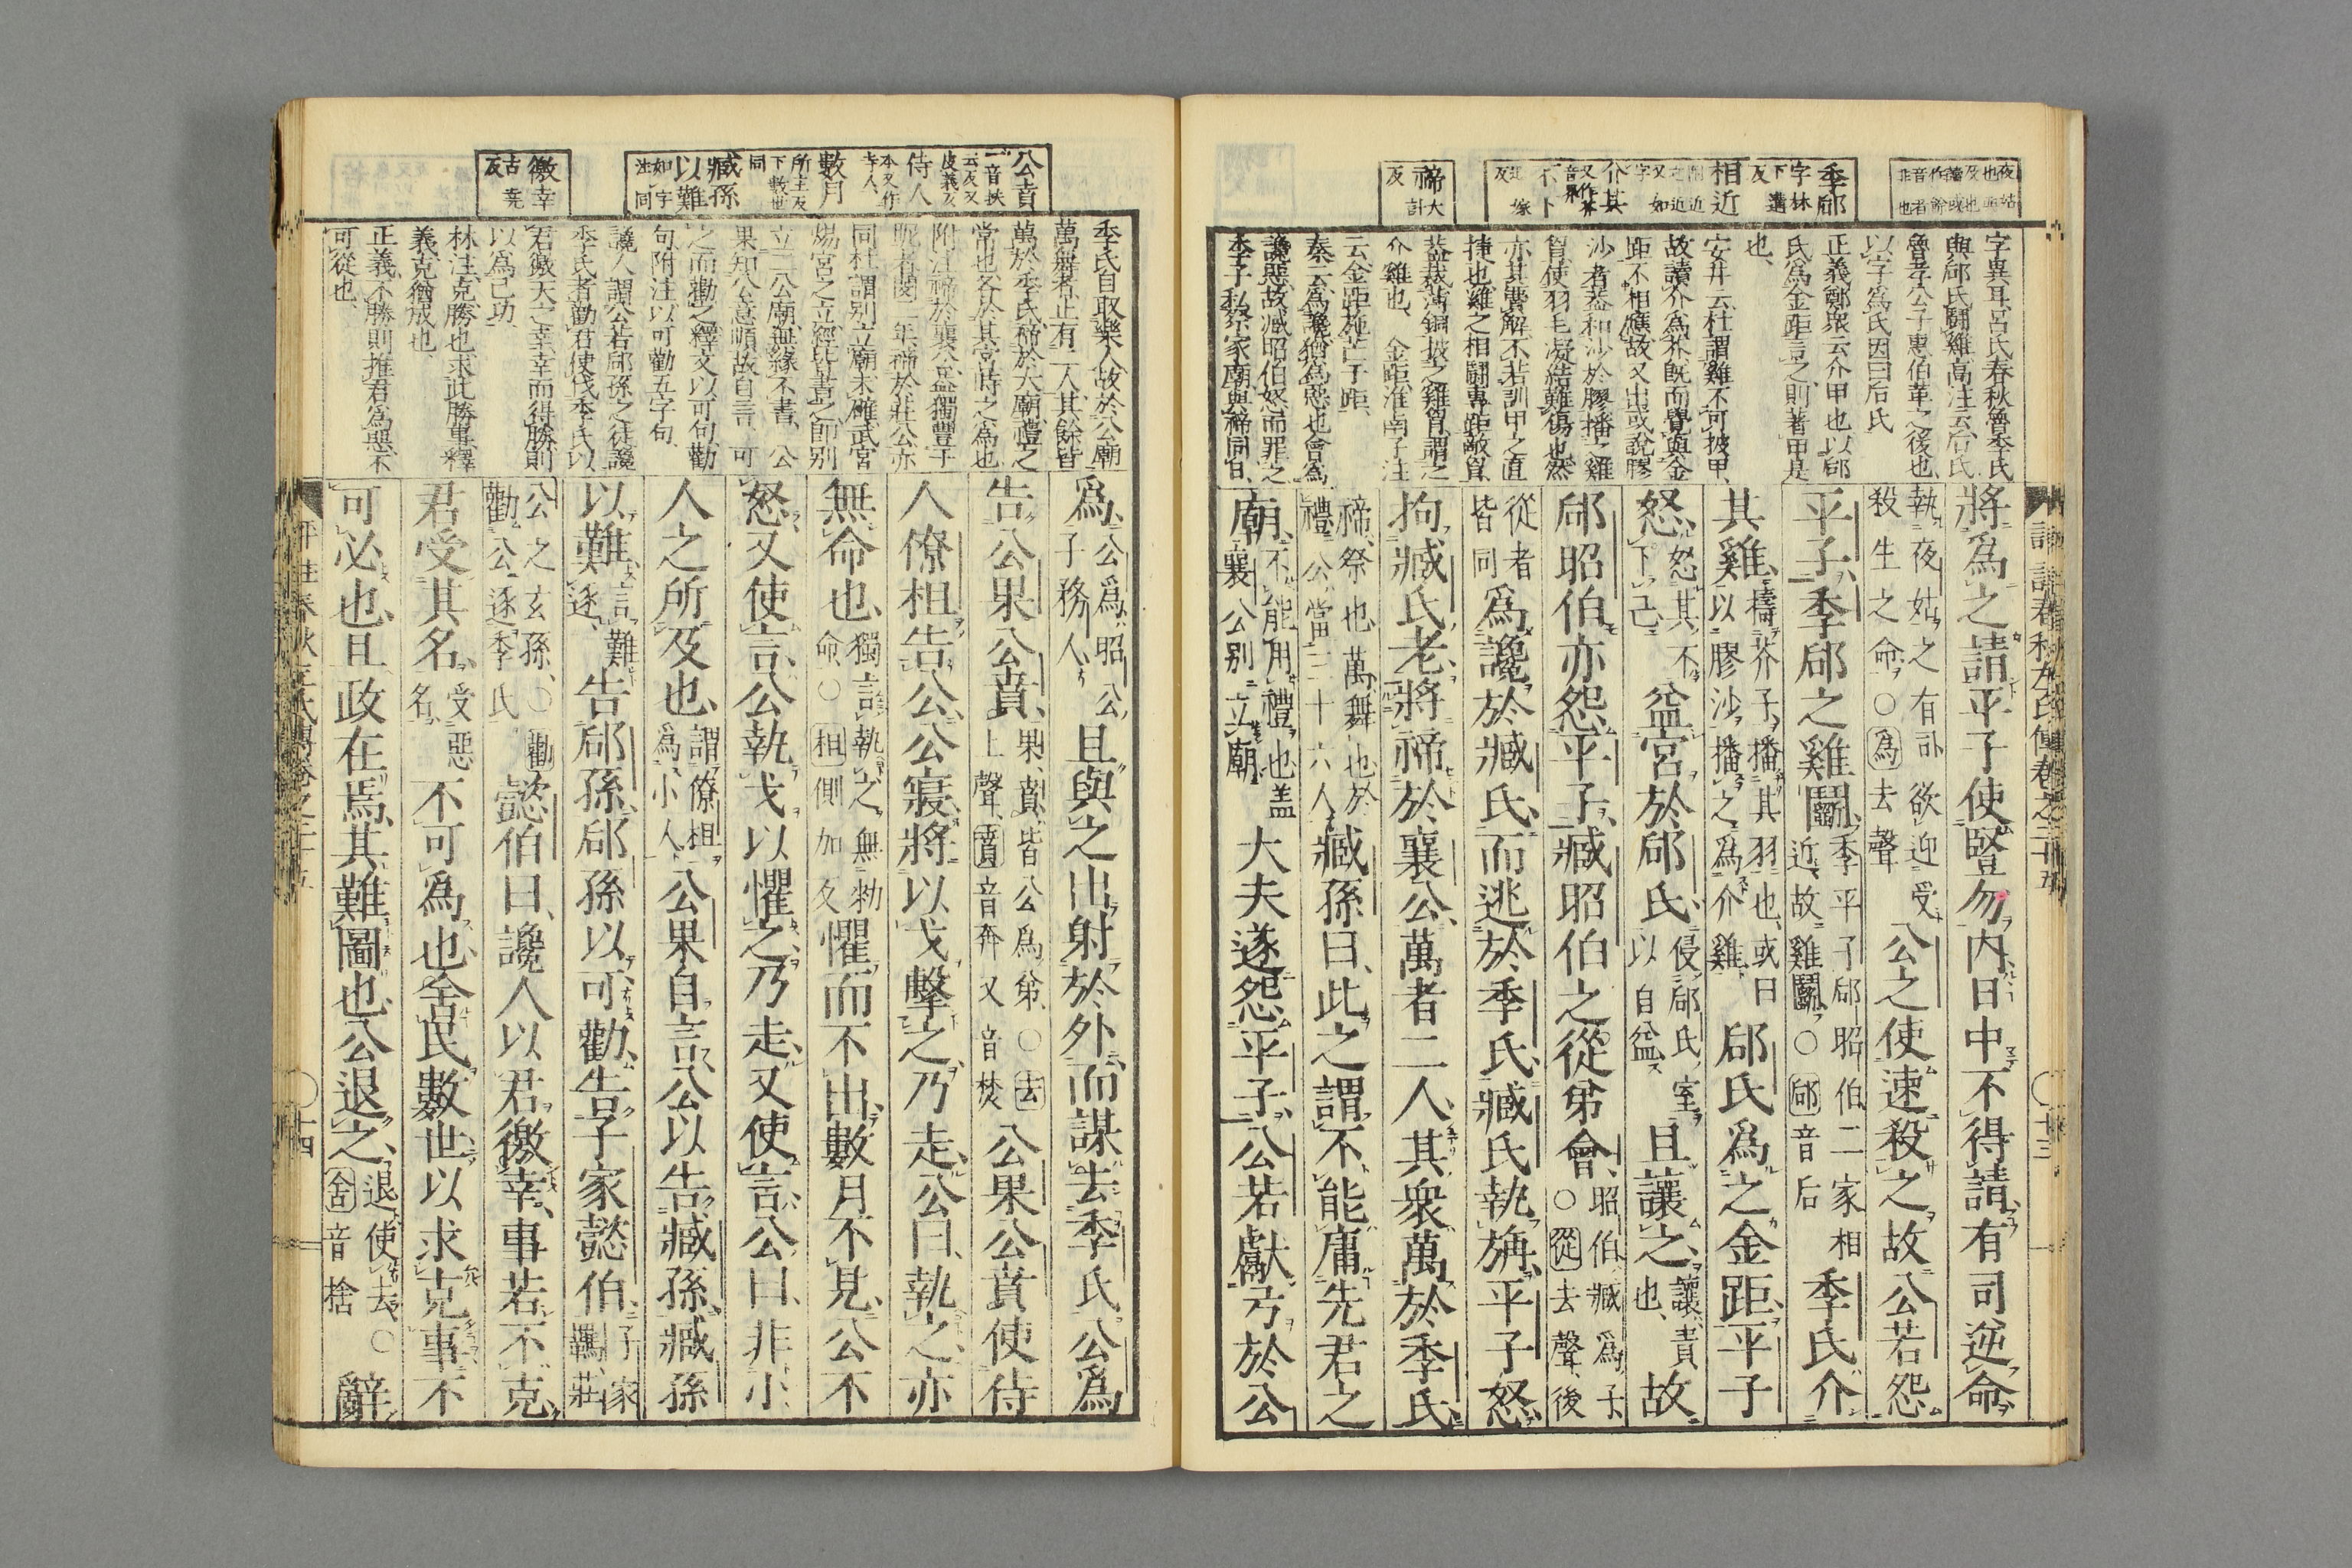 季郈 字林下遘反 相近 附近之近又如字 介其 又作芥音界 不下 遐嫁反
禘 大計反
字異耳呂氏春秋魯季氏
與郈氏鬪雞高注云后氏
魯孝公子惠伯革之後也
以字爲氏因曰后氏
正義鄭衆云介甲也以郈
氏爲金距言之則著甲是
也、
安井云杜謂雞不可披甲、
故讀介爲芥旣而覺與金
距不相應故又出或說膠
沙者蓋和沙於膠播之雞
肎使羽毛凝結難傷也然
亦其費解不若訓甲之直
捷也雞之相鬪專距敵肎
蓋裁薄銅披之雞肎謂之
介雞也、金距淮南子注
云金距施芒于距、
秦云爲讒猶爲惡也會爲
讒惡故臧昭伯怒而罪之
季子私祭家廟與禘同日、
將爲之請平子使豎勿內日中不得請有司逆命
執夜姑之有司欲迎受殺生之命○爲去聲公之使速殺之故公若怨
平子季郈之雞鬭季平子郈昭伯二家相近故雞鬭○郈音后季氏介
其雞擣芥子播其羽也或曰以膠沙播之爲介雞郈氏爲之金距平子
怒怒其不下己益宮於郈氏侵郈氏室以自益且讓之讓責也故
郈昭伯亦怨平子臧昭伯之從弟會昭伯臧爲子○從去聲後
從者皆同爲讒於臧氏而逃於季氏臧氏執旃平子怒
拘臧氏老將禘於襄公萬者二人其衆萬於季氏
禘祭也萬舞也於禮公當三十六人臧孫曰此之謂不能庸先君之
廟不能用禮也蓋襄公別立廟大夫遂怨平子公若獻弓於公
詳註春秋左氏傳卷之二十五
○十三
公賁 音扶云反又彼義反 侍人 本又作寺人 數月 所主反下數世同 臧孫以難 如字注同
徼幸 古堯反
季氏自取樂人故於公廟
萬舞者止有二人其餘皆
萬於季氏禘於大廟禮之
常也各於其宮時之爲也
附注禘於襄公蓋獨豐于
昵者閔二年禘於莊公亦
同杜謂別立廟未確武宮
煬宮之立經皆書之卽別
立公廟無緣不書、公
果知公意順故自言、可
之而勸之釋文以可句勸
句附注以可勸五字句、
讒人謂公若郈孫之徒讒
季氏者勸君使伐季氏以
君徼天之幸幸而得勝則
以爲己功、
林注克勝也求此勝事釋
義克猶成也、
正義不勝則推君爲惡不
可從也、
爲公爲昭公子務人且與之出射於外而謀去季氏公爲
告公果公賁果賁皆公爲弟○去上聲賁音奔又音焚公果公賁使侍
人僚柤告公公寢將以戈擊之乃走公曰執之亦
無命也獨言執之無勑命○柤側加反懼而不出數月不見公不
怒又使言公執戈以懼之乃走又使言公曰非小
人之所及也謂僚柤爲小人公果自言公以告臧孫臧孫
以難言難逐告郈孫郈孫以可勸告子家懿伯子家羈莊
公之玄孫○勸勸公逐季氏懿伯曰讒人以君徼幸事若不克
君受其名受惡名不可爲也舍民數世以求克事不
可必也且政在焉其難圖也公退之退使去○舍音捨辭
評註春秋左氏傳卷之二十五
○十四